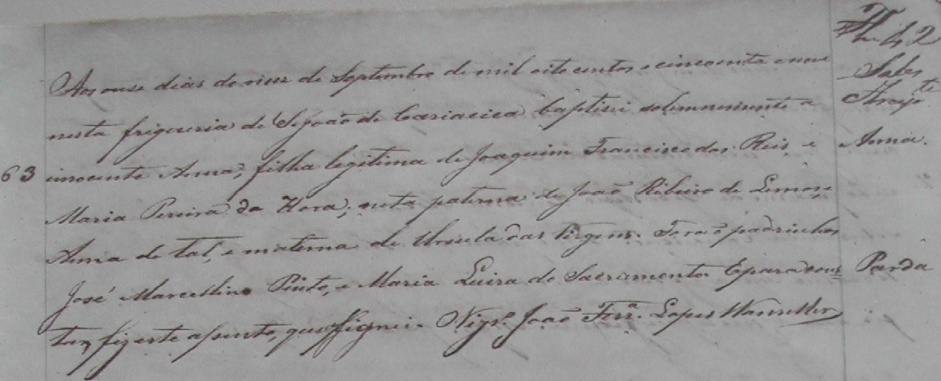 Aos onze dias do mez de Septembro de mil oito centos e cincoenta e nove
nesta freguezia de S. João de Cariacica baptisei solemnemente a
63 innocente Anna, filha legitima de Joaquim Francisco dos Reis, e
Maria Pereira da Hora, neta paterna de João Ribeiro de Lemos, e
Anna de tal, e materna de Ursula das Virgens. Forão padrinhos
José Marcellino Pinto, e Maria Luiza do Sacramento. E para cons
tar, fiz este assento, que assignei. Vigr.º João Ferr.ª Lopes
Fl. 42
Anna.
Parda